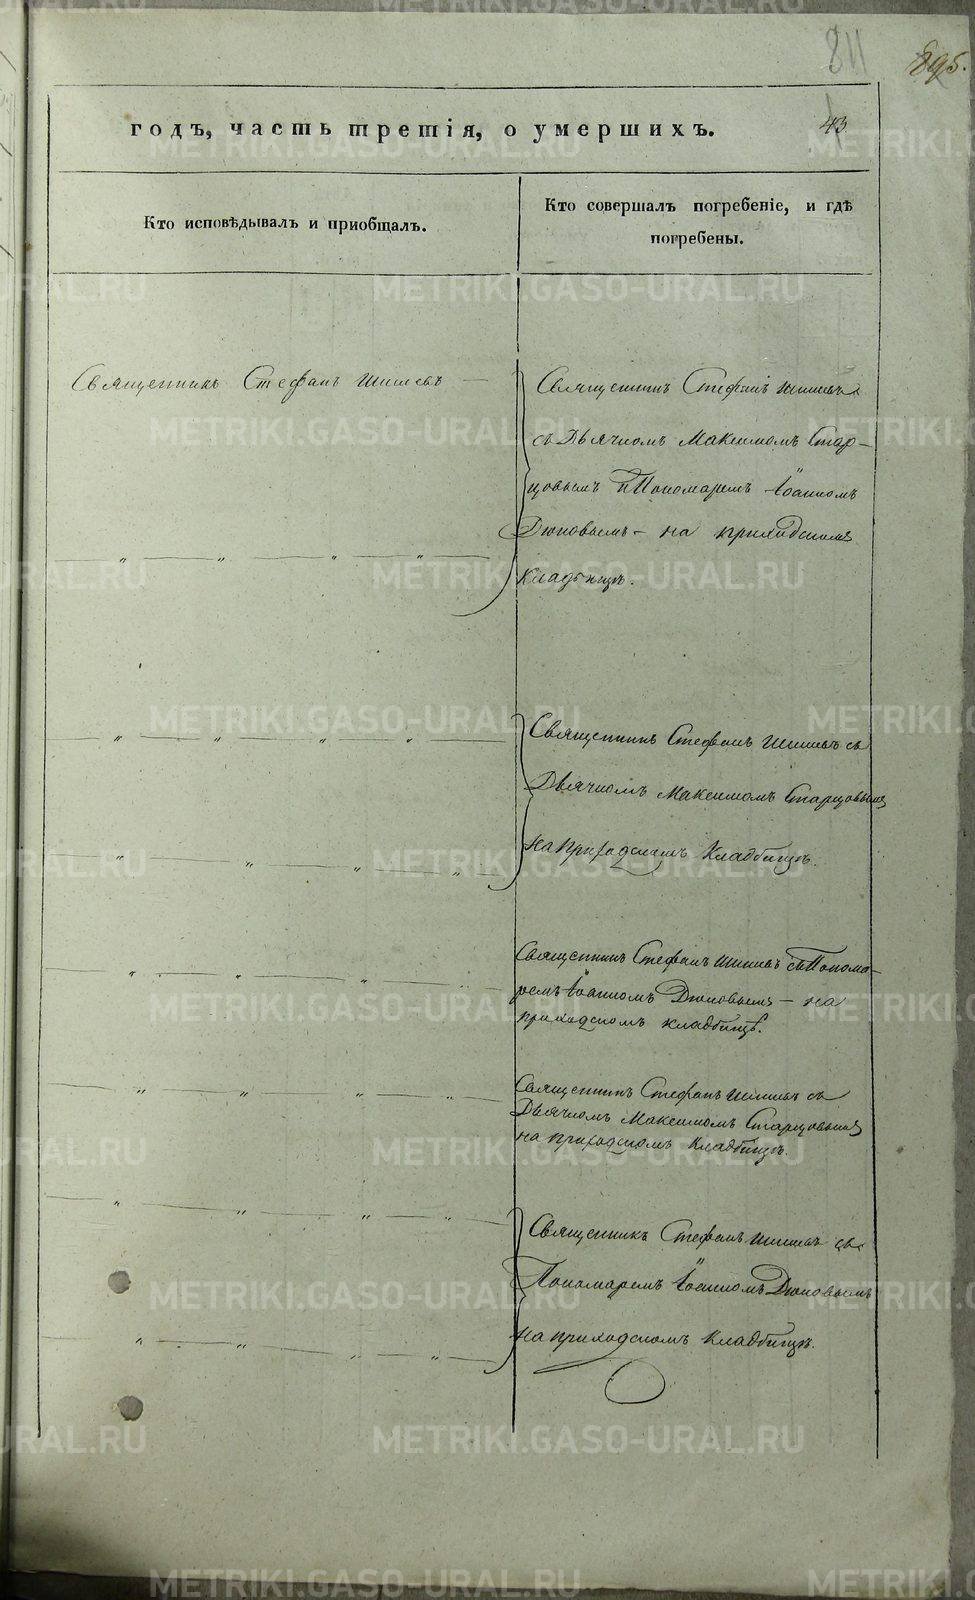 811
895.
годъ, часть третія, о умершихъ.
43
Кто исповѣдывалъ и пріобщалъ.
Кто совершалъ погребеніе, и гдѣ
погребены.
Священникъ Стефанъ Шишевъ —
Священникъ Стефанъ Шишевъ
съ Дьячкомъ Максимомъ Стар-
цовымъ и Пономаремъ Іоанномъ
Дюковымъ — на приходскомъ
Кладбищѣ.
Священникъ Стефанъ Шишевъ съ
Дьячкомъ Максимомъ Старцовымъ
на приходскомъ Кладбищѣ.
Священникъ Стефанъ Шишевъ съ Понома-
ремъ Іоанномъ Дюковымъ — на
приходскомъ кладбищѣ.
Священникъ Стефанъ Шишевъ съ
Дьячкомъ Максимомъ Старцовымъ
на приходскомъ Кладбищѣ.
Священникъ Стефанъ Шишевъ съ
Пономаремъ Іоанномъ Дюковымъ
на приходскомъ кладбищѣ.
METRIKI.GASO-URAL.RU